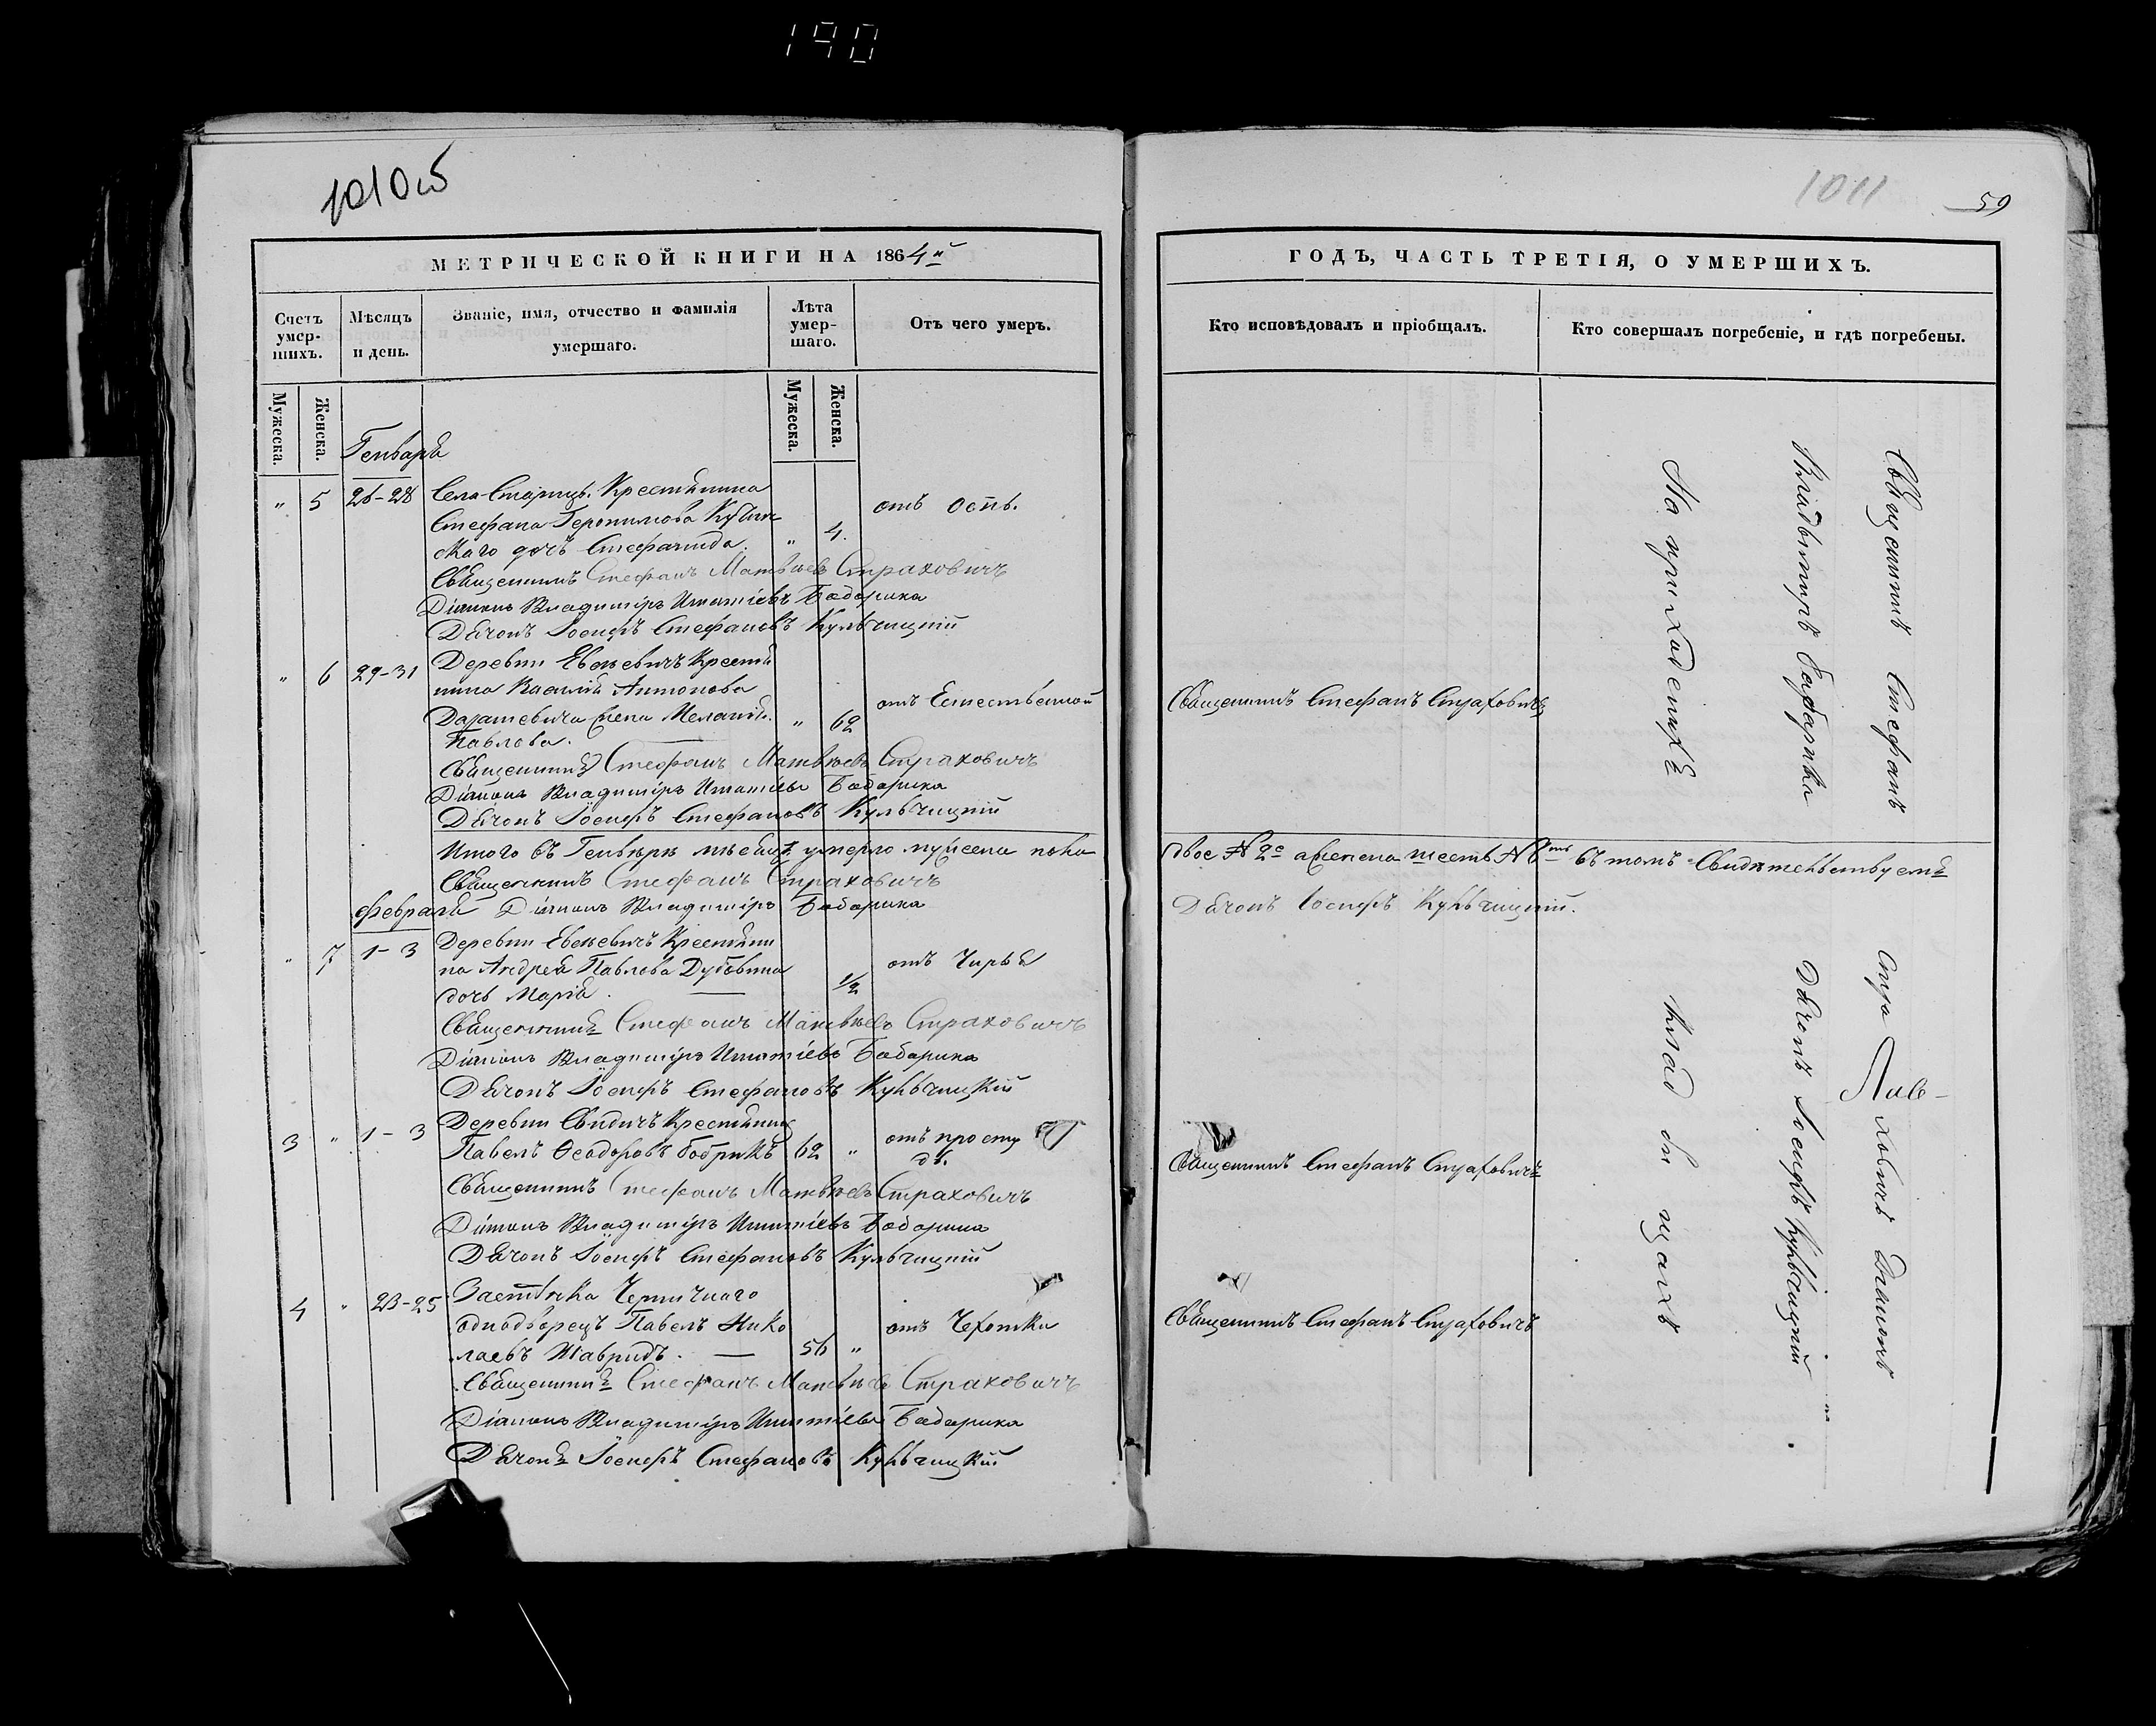 190
1010об
1011
59
МЕТРИЧЕСКОЙ КНИГИ НА 1864й
ГОДЪ, ЧАСТЬ ТРЕТІЯ, О УМЕРШИХЪ.
Счетъ умер-шихъ.
Мѣсяцъ и день.
Званіе, имя, отчество и фамилія умершаго.
Лѣта умер-шаго.
Отъ чего умеръ.
Кто исповѣдовалъ и пріобщалъ.
Кто совершалъ погребеніе, и гдѣ погребены.
Мужеска.
Женска.
Мужеска.
Женска.
Генваря
" 5 26-28 Села Старицъ Крестьянина
Стефана Геронимова
скаго дочь Стефанида. " 4. отъ Оспы.
Священникъ Стефанъ Матвѣевъ Страховичъ
Діаконъ Владиміръ Игнатіевъ Бабарика
Дьячокъ Іосифъ Стефановъ Кульчицкій
" 6 29-31 Деревни Евсевичъ Крестья
нина Василія Антонова
жена Меланія " 62 отъ Естественной
Павлова.
Священникъ Стефанъ Страховичъ
Священникъ Стефанъ Матвѣевъ Страховичъ
Діаконъ Владиміръ Игнатіевъ Бабарика
Дьячокъ Іосифъ Стефановъ Кульчицкій
Итого въ Генварѣ мѣсяцѣ умерло мужеска пола двое № 2е а женска шесть № 6ть въ томъ Свидѣтельствуемъ
Священникъ Стефанъ Страховичъ
Діаконъ Владиміръ Бабарика
Дьячокъ Іосифъ Кульчицкій.
Февраля
" 7 1-3 Деревни Евсевичъ Крестьяни
на Андрея Павлова Дубовика
дочь Марія. — 1/2 отъ Чирья
Священникъ Стефанъ Матвѣевъ Страховичъ
Діаконъ Владиміръ Игнатіевъ Бабарика
Дьячокъ Іосифъ Стефановъ Кульчицкій
3 " 1-3 Деревни Свидичъ Крестьянинъ
Павелъ Ѳеодоровъ Бобрикъ 62 " отъ просту
ды.
Священникъ Стефанъ Страховичъ
Священникъ Стефанъ Матвѣевъ Страховичъ
Діаконъ Владиміръ Игнатіевъ Бабарика
Дьячокъ Іосифъ Стефановъ Кульчицкій
4 " 23-25 Застѣнка
однодворецъ Павелъ Нико
лаевъ — 56 " отъ Чехотки
Священникъ Стефанъ Страховичъ
Священникъ Стефанъ Матвѣевъ Страховичъ
Діаконъ Владиміръ Игнатіевъ Бабарика
Дьячокъ Іосифъ Стефановъ Кульчицкій
Священникъ Стефанъ Страховичъ Діаконъ
Владиміръ Бабарика Дьячокъ Іосифъ Кульчицкій
На приходскихъ кладбищахъ